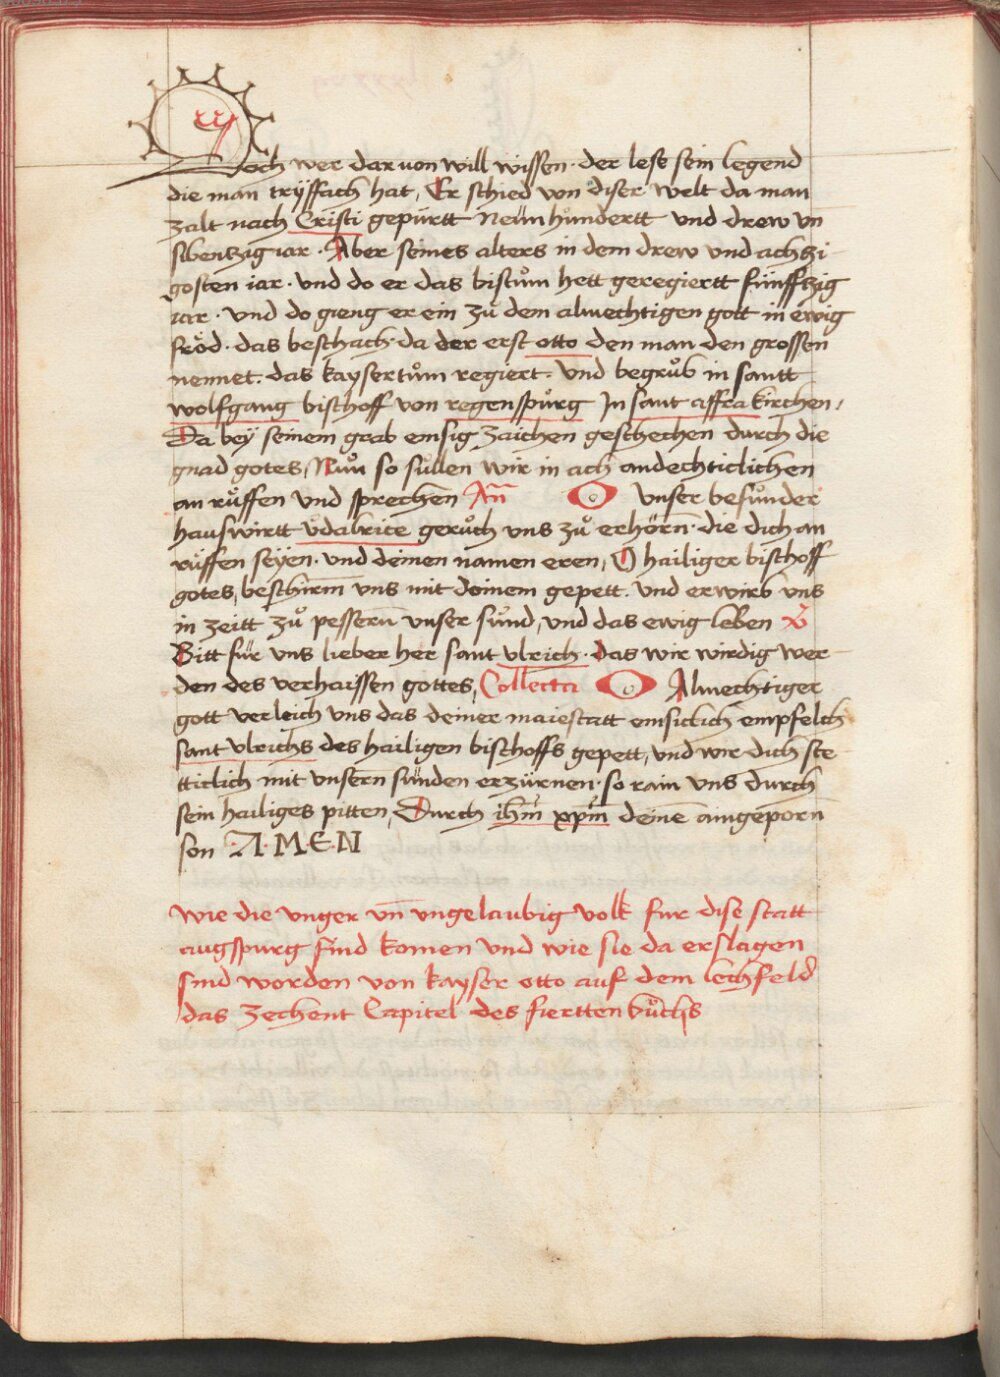 Doch wer dar von will wissen · der lese sein legend
die man tryffach hat, Er schied von diser welt da man
zalt nach Cristi gepürtt Neünhůndertt und drew vn
sibentzig iar · Aber seines alters in dem drew und achtzi
gosten iar · und do er das bistům hett geregiertt fünfftzig
iar · und do gieng er ein zů dem almechtigen gott in ewig
fröd · das beschach da der erst otto den man den grossen
nennet · das kaysertům regiert · und begrůb in santt
wolfgang bischoff von regenspůrg In sant affra kirchen,
Da bey seinem grab emsig zaichen geschechen durch die
gnad gotes, Nůn so sůllen wir in ach andechticlichen
an růffen und sprechen An̄ O unser besůnder
hauswirtt ůdalrice gerůch uns zů erhörn · die dich an
rüffen seyen · und deinen namen eren, O hailiger bischoff
gotes, beschirm̄ uns mit deinem gepett · und erwirb uns
in zeitt zů pessern̄ unser sünd, und das ewig leben
Bitt für uns lieber her sant ulrich · das wir wirdig wer
den des verhaissen gottes, Collecta O Almechtiger
gott verleich uns das deiner maiestatt emsiclich empfelch
sant ulrichs des hailigen bischoffs gepett, und wir dich ste
tticlich mit unsern sünden erzürnen · so rain uns durch
sein hailiges pitten, Durch ihm̄ xpm̄ deinē aingeporn̄
son A·M·E·N
Wie die unger vn̄ ungelaubig volk fur dise statt
augspurg sind komen und wie sie da erslagen
sind worden von kayser otto auf dem lechfeld
das zechent Capitel des fiertten bůchs